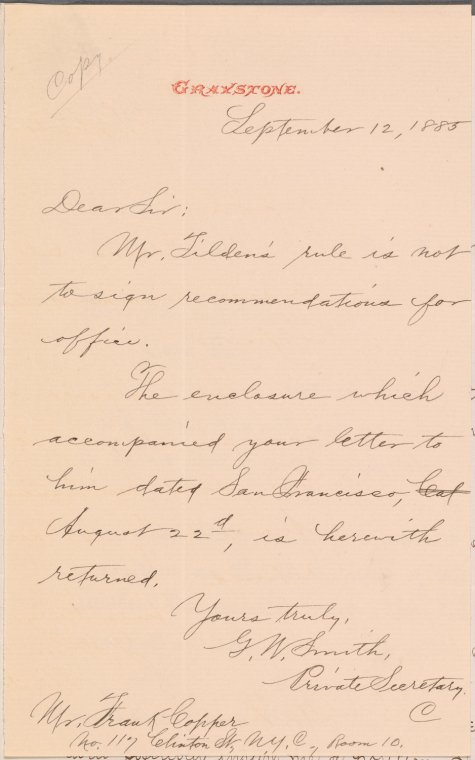 Copy.
GRAYSTONE.
September 12, 1885
Dear Sir:
Mr. Tilden's rule is not
to sign recommendations for
office.
The enclosure which
accompanied your letter to
him dated San Francisco, Cal
August 22d, is herewith
returned.
Yours truly,
G. W. Smith,
Private Secretary.
C
Mr. Frank Copper
No. 117 Clinton St, N.Y.C., Room 10.